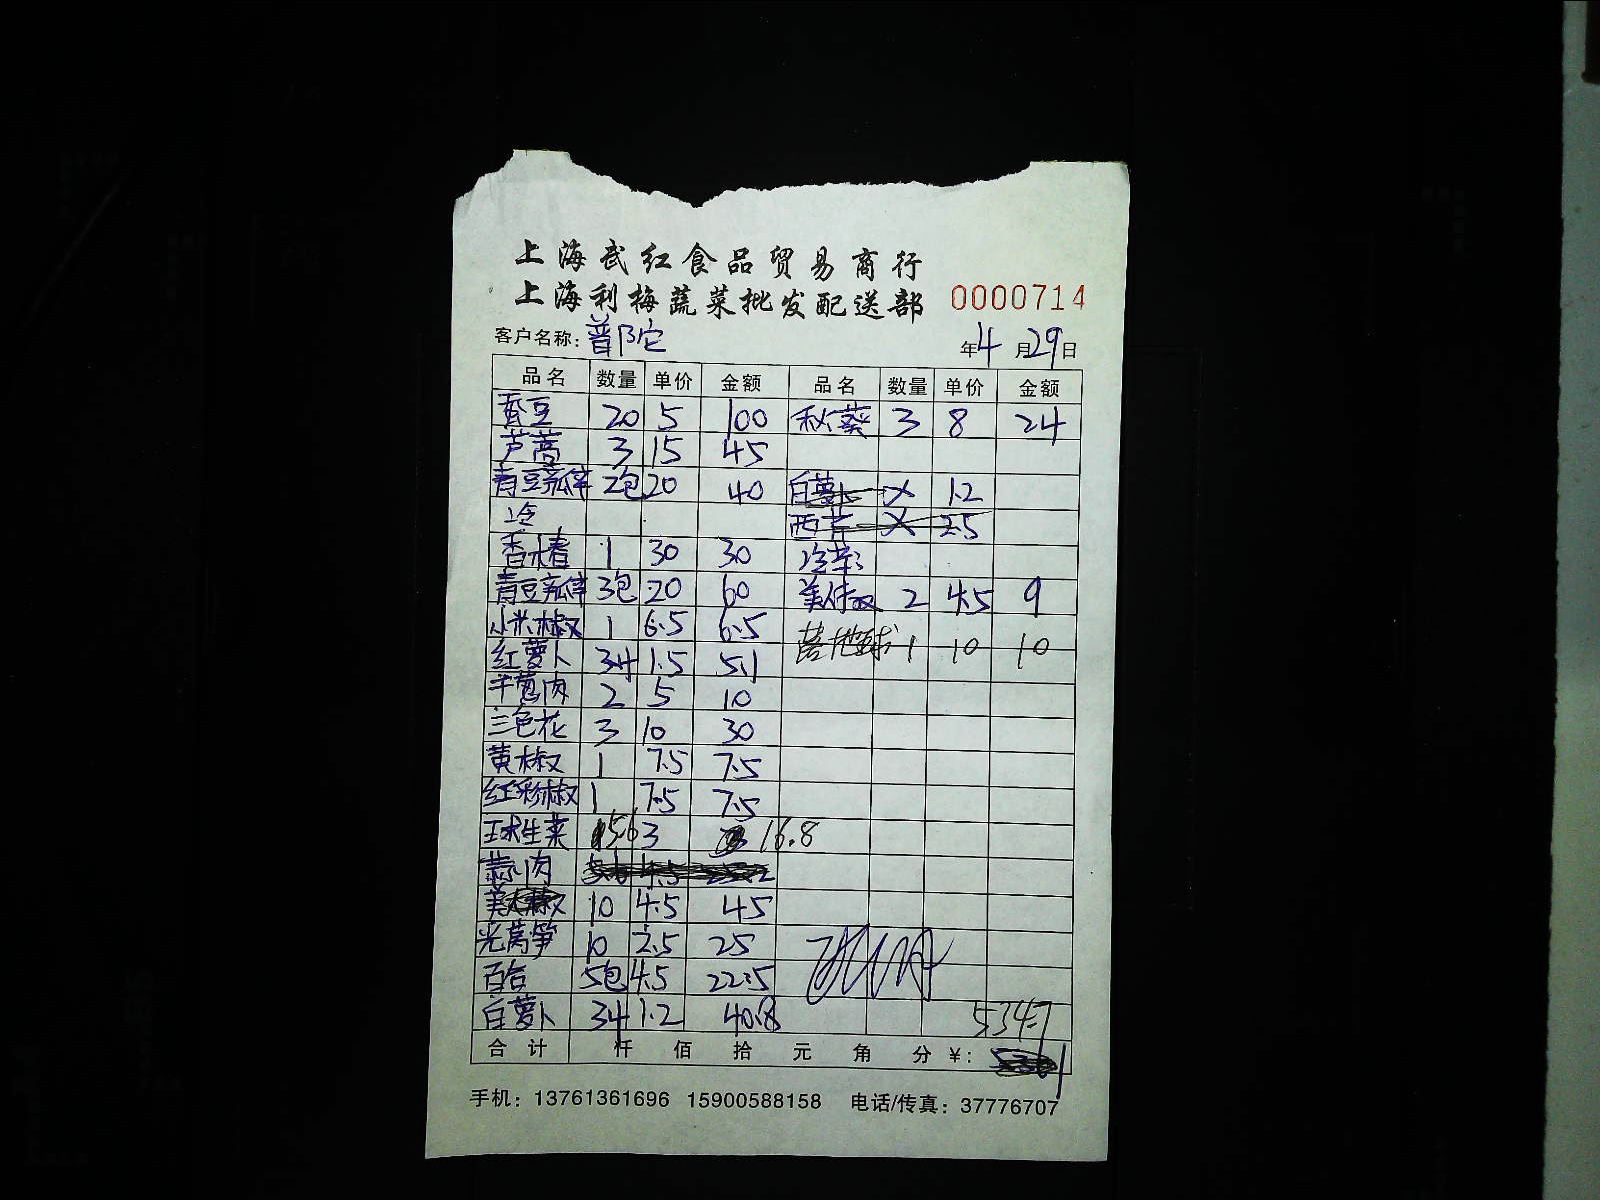 上海武红食品贸易商行
上海利梅蔬菜批发配送部 0000714
客户名称：普陀 年4月29日
品名 数量 单价 金额 品名 数量 单价 金额
香豆 20 5 100 秋葵 3 8 24
芦蒿 3 15 45
青豆瓣 2包 20 40 白萝卜 1.2
冷 西芹 2.5
香椿 1 30 30 冷菜:
青豆瓣 3包 20 60 美人椒 2 4.5 9
小米椒 1 6.5 6.5 1 10 10
红萝卜 3.4 1.5 5.1
羊葱肉 2 5 10
三色花 3 10 30
黄椒 1 7.5 7.5
红彩椒 1 7.5 7.5
球生菜 5.6 3 16.8
蒜肉
10 4.5 45
光莴笋 10 2.5 25
百合 5包 4.5 22.5
白萝卜 34 1.2 40.8
534.7
合计 仟 佰 拾 元 角 分 ¥:
手机：13761361696 15900588158 电话/传真：37776707